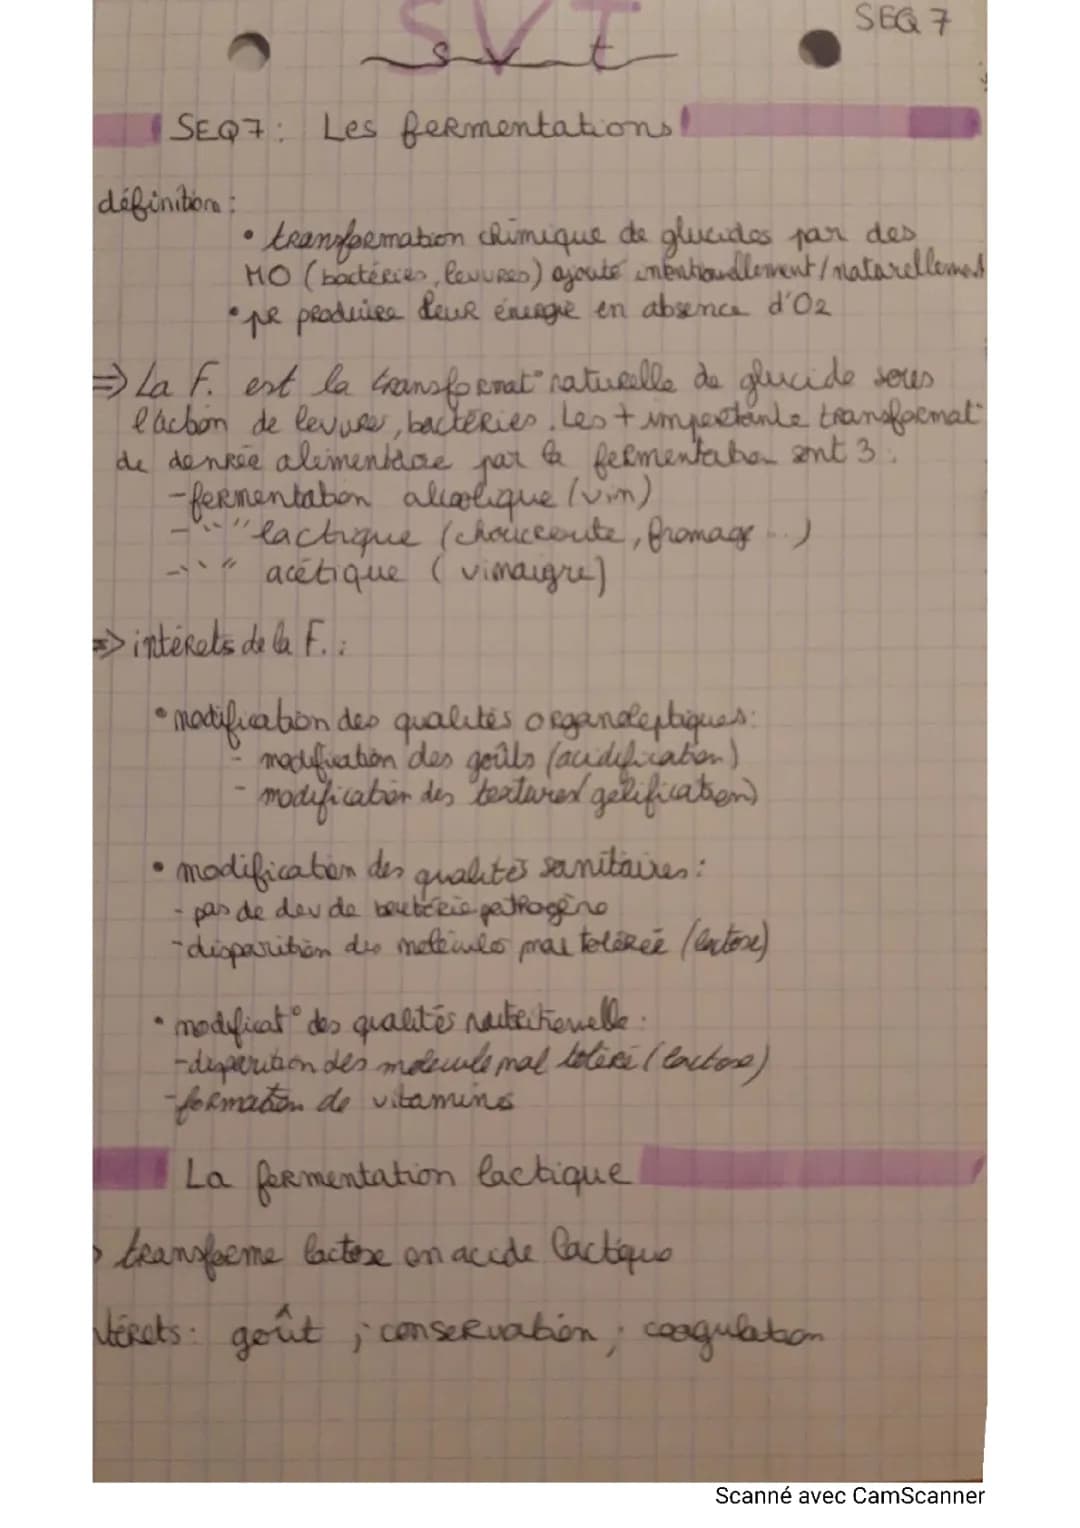 SVT
SEQ 7
svt
SEQ7: Les fermentations
définition:
• transformation chimique de glucides par des
MO (bactéries, levures) ajouté intentionellement/naturellement
• pr produire leur énergie en absence d'O2
=> La F. est la transformat° naturelle de glucide sous
l'action de levures, bactéries. Les + importante transformat°
de denrée alimentaire par la fermentation sont 3:
-fermentation alcoolique (vin)
- " " lactique (choucroute, fromage ...)
- " " acétique (vinaigre)
=> intérets de la F.:
• modification des qualités organoleptiques:
- modification des goûts (acidification)
- modification des textures (gélification)
• modification des qualités sanitaires:
- pas de dev de bactérie pathogène
- disparition des molécules mal tolérée (lactose)
• modificat° des qualités nutritionnelle:
-disparition des molecule mal toléré (lactose)
-formation de vitamines
La fermentation lactique
> transforme lactose en acide lactique
ntérets: goût ; conservation ; coagulation
Scanné avec CamScanner